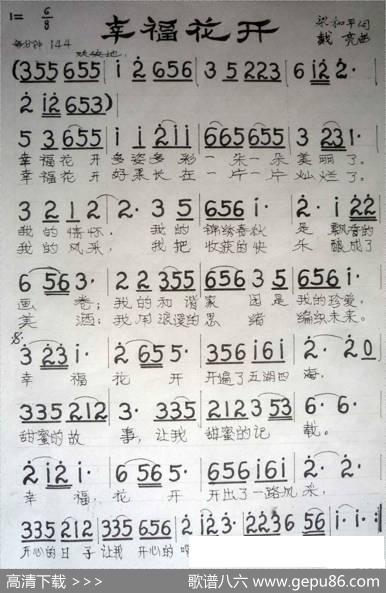 幸福花开
1= 6/8
梁和平词
每分钟 144
戴亮曲
欢快地
(355 655 | i 2 656 | 3 5 223 | 6 i2 2· |
2 i2 653)
5 3 655 | i i 2ii | 665 655 | 3 231· |
幸福花开多姿多彩一朵一朵美丽了。
幸福花开好果长在一片一片灿烂了。
3 212 | 2· 3 5 | 656 i· | 2· i 22 |
我的情怀,我的锦绣春秋是飘香的
我的风采,我把收获的快乐酿成了
6 56 3· | 2 2 355 | 656 3 5 | 656 i· |
画卷;我的和谐家园是我的珍爱,
美酒;我用浪漫的思绪编织未来。
3 23 i· | 2 65 5· | 356 i6i | 2· 2 0 |
幸福花开开遍了五湖四海,
335 212 | 3· 335 | 212 3 53 | 6· 6· |
甜蜜的故事,让我甜蜜的记载。
2 i2 i· | 6 56 5· | 656 i6i | 2· 2· |
幸福,花开开出了一路风采,
335 212 | 335 656 | 2 i2 3· | 223 6 56 | i· i· :|
开心的日子让我开心的
高清下载 >>>
歌谱八六 www.gepu86.com